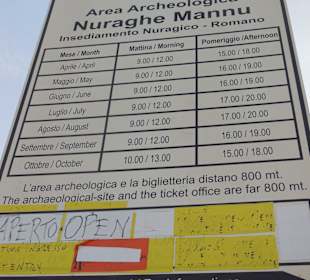 Area Archeologica
Nuraghe Mannu
Insediamento Nuragico - Romano
Mese / Month Mattina / Morning Pomeriggio /Afternoon
Aprile / April 9.00 / 12.00 15.00 / 18.00
Maggio / May 9.00 / 12.00 16.00 / 19.00
Giugno / June 9.00 / 12.00 16.00 / 19.00
Luglio / July 9.00 / 12.00 17.00 / 20.00
Agosto / August 9.00 / 12.00 17.00 / 20.00
Settembre / September 9.00 / 12.00 16.00 / 19.00
Ottobre / October 10.00 / 13.00 15.00 / 18.00
L'area archeologica e la biglietteria distano 800 mt.
The archaeological-site and the ticket office are far 800 mt.
APERTO - OPEN